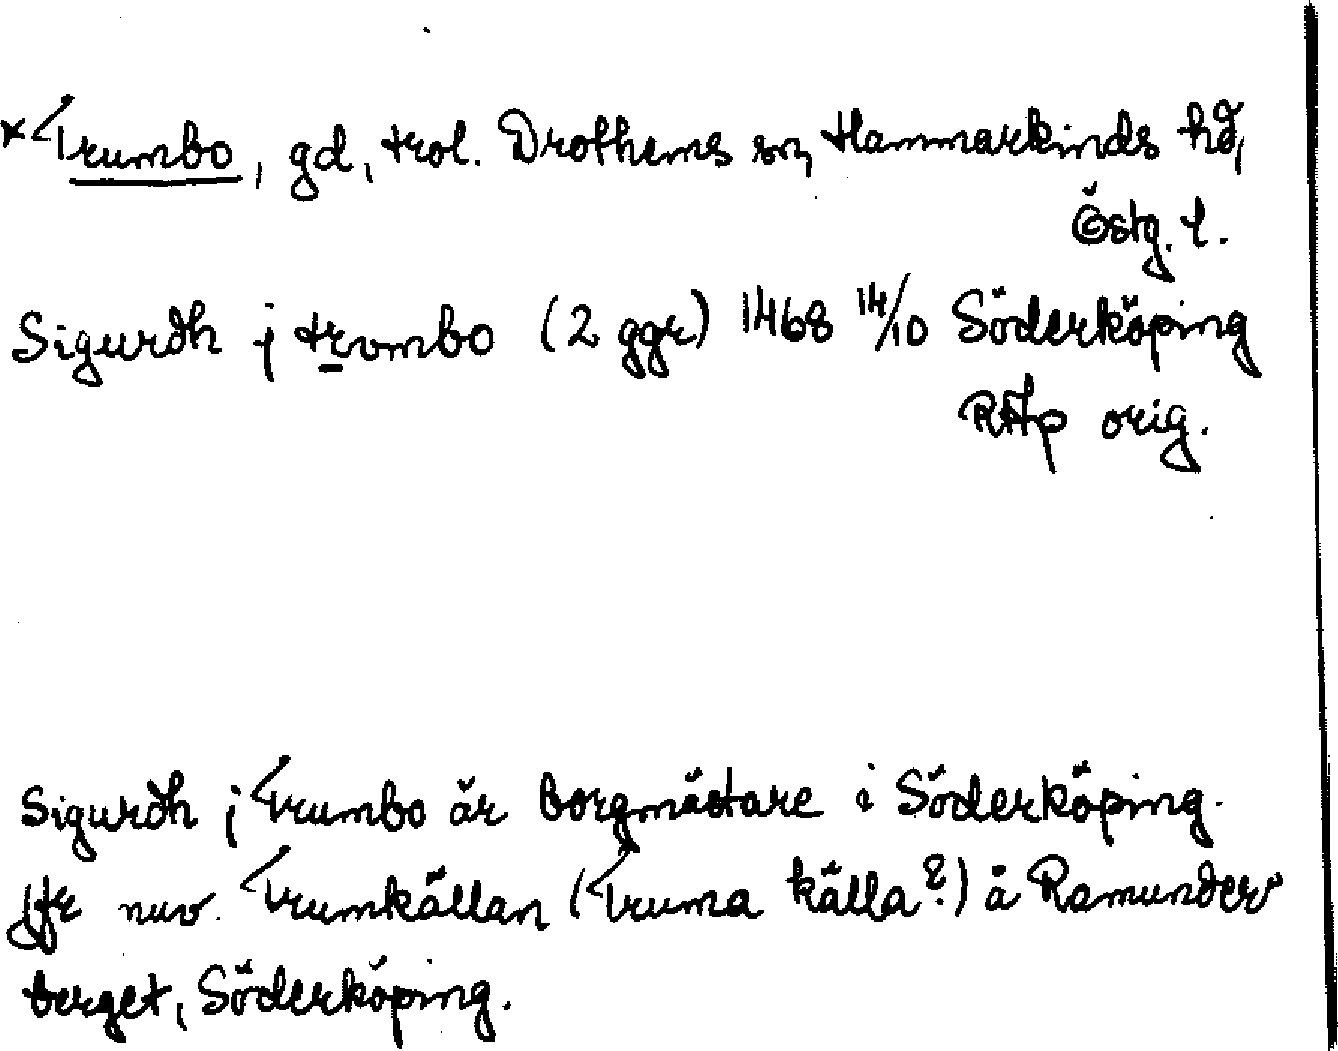 *Trumbo, gd, trol. Drothems sn, Hammarkinds hd,
Östg. l.
Sigurdh j trombo (2 ggr) 1468 14/10 Söderköping
RAp orig.
Sigurdh j Trumbo är borgmästare i Söderköping.
Jfr nuv. Trumkällan (Truma källa?) å Ramunder
berget, Söderköping.